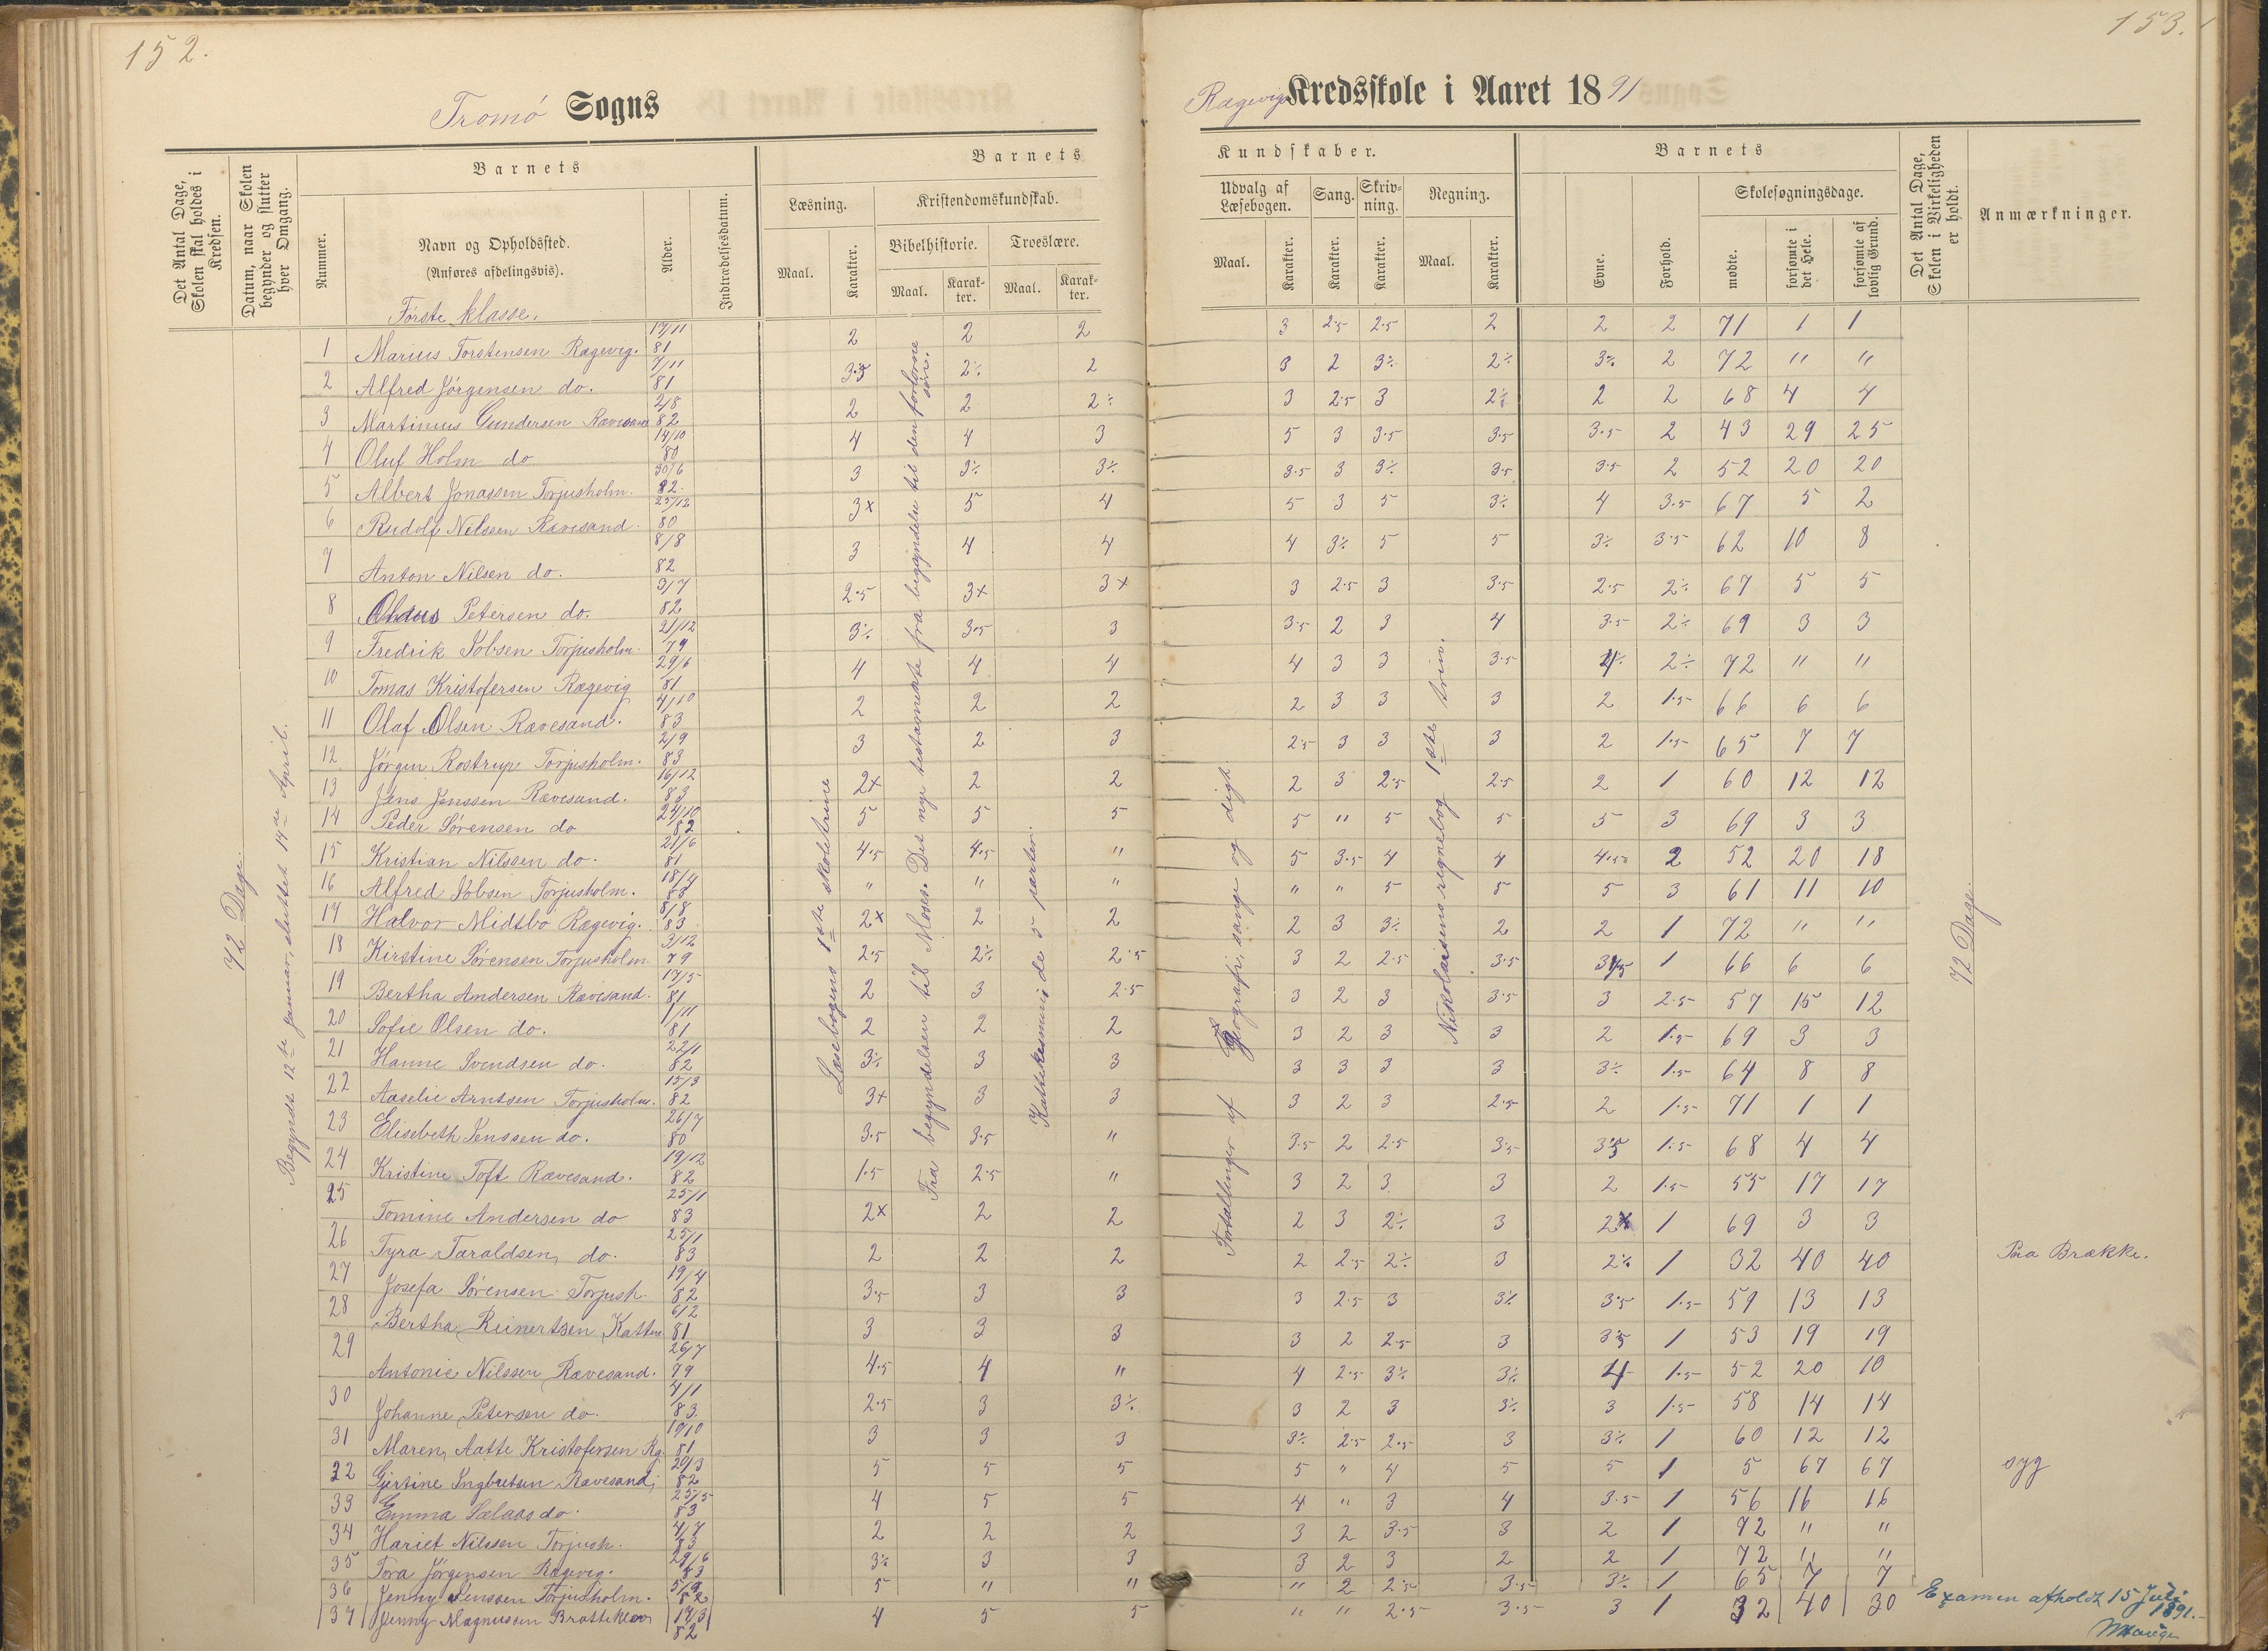 152.
Tromø Sogns
Det Antal Dage, Skolen skal holdes i Kredsen.
Datum, naar Skolen begynder og slutter hver Omgang.
Barnets
Nummer.
Navn og Opholdssted.
(Anføres afdelingsvis).
Alder.
Indtrædelsesdatum.
Barnets
Læsning.
Maal.
Karakter.
Kristendomskundskab.
Bibelhistorie.
Maal.
Karakter.
Troeslære.
Maal.
Karakter.
72 Dage.
Begyndt 12te januar, sluttet 14de April.
Læsebogens 1ste skoletrin
Fra begyndelsen til Moses. Det nye testamente fra begyndelse til den fortorne
Første klasse.
1 Marius Torstensen Rægevig. 81 2 2 2
2 Alfred Jørgensen do. 7/11 81 3.5 2÷ 2
3 Martinius Gundersen Rævesand 2/8 82 2 2 2÷
4 Oluf Holm do 14/10 80 4 4 3
5 Albert Jonassen Torjusholm. 30/6 82. 3 3÷ 3÷
6 Rudolf Nilssen Rævesand. 25/12 80 3x 5 4
7 Anton Nilsen do. 8/8 82 3 4 4
8 Petersen do. 3/7 82 2.5 3+ 3+
9 Fredrik Jobsen Torjusholm. 21/12 79 3÷ 3.5 3
10 Tomas Kristofersen Rægevig 29/6 81 4 4 4
11 Olaf Olsen Rævesand. 4/10 83 2 2 2
12 Jørgen Rostrup Torjusholm. 2/9 83 3 2 3
13 Jens Jenssen Rævesand. 16/12 83 2+ 2 2
14 Peder Sørensen do 24/10 82 5 5 5
15 Kristian Nilssen do. 21/6 81 4.5 4.5 "
16 Alfred Jobsen Torjusholm. 18/4 " " "
17 Halvor Midtbø Rægevig. 8/8 83 2x 2 2
18 Kirstine Sørensen Torjusholm 3/12 79 2.5 2÷ 2.5
19 Bertha Andersen Rævesand. 17/5 81 2 3 2.5
20 Sofie Olsen do. 1/11 81 2 2 2
21 Hanne Svendsen do. 22/1 82 3÷ 3 3
22 Aaselie Arntsen Torjusholm. 15/3 82 3+ 3 3
23 Elisebeth Jenssen do. 26/7 80 3.5 3.5 "
24 Kristine Toft Rævesand. 19/12 82 1.5 2.5 "
25 Tomine Andersen do 25/1 83 2x 2 2
26 Tyra Taraldsen, do. 25/1 83 2 2 2
27 Josefa Sørensen Torjush. 19/4 82 3.5 3 3
28 Bertha Reinertsen 6/2 81 3 3 3
29 Antonie Nilssen Rævesand. 26/7 79 4.5 4 "
30 Johanne Petersen do. 4/1 83. 2.5 3 3÷
31 Maren, Aatte Kristofersen Rg. 81 3 3 3
32 Gjertine Ingbretsen Rævesand, 20/3 82 5 5 5
33 Emma Salaas do. 25/5 83 4 5 5
34 Hariet Nilssen Torjush. 4/7 83 2 2 2
35 Tora Jørgensen Rægevig. 29/6 83 3÷ 3 3
36 Jenny Jenssen Torjusholm. 82 5 " "
37 Jenny Magnussen Bratteklev 82 4 5 5
153.
Rægevig Kredsskole i Aaret 1891
Kundskaber.
Udvalg af Læsebogen.
Maal.
Karakter.
Sang.
Karakter.
Skrivning.
Karakter.
Regning.
Maal.
Karakter.
Barnets
Evne.
Forhold.
Skolesøgningsdage.
mødte.
forsømte i det Hele.
forsømte af lovlig Grund.
Det Antal Dage, Skolen i Virkeligheden er holdt.
Anmærkninger.
Fortællinger af geografi, sange og digt.
Nikolaisens regnebog 1ste trin.
72 Dage.
3 2.5 2.5 2 2 2 71 1 1
3 2 3÷ 2÷ 3÷ 2 72 " "
3 2.5 3 2÷ 2 2 68 4 4
5 3 3.5 3.5 3.5 2 43 29 25
3.5 3 3÷ 3.5 3.5 2 52 20 20
5 3 5 3÷ 4 3.5 67 5 2
4 3÷ 5 5 3÷ 3.5 62 10 8
3 2.5 3 3.5 2.5 2÷ 67 5 5
3.5 2 3 4 3.5 2÷ 69 3 3
4 3 3 3.5 4÷ 2÷ 72 " "
2 3 3 3 2 1.5 66 6 6
2.5 3 3 3 2 1.5 65 7 7
2 3 2.5 2.5 2 1 60 12 12
5 " 5 5 5 3 69 3 3
5 3.5 4 4 4.5 2 52 20 18
" " 5 5 5 3 61 11 10
2 3 3÷ 2 2 1 72 " "
3 2 2.5 3.5 3.5 1 66 6 6
3 2 3 3.5 3 2.5 57 15 12
3 2 3 3 2 1.5 69 3 3
3 3 3 3 3÷ 1.5 64 8 8
3 2 3 2.5 2 1.5 71 1 1
3.5 2 2.5 3.5 3.5 1.5 68 4 4
3 2 3 3 2 1.5 55 17 17
2 3 2÷ 3 2x 1 69 3 3
2 2.5 2÷ 3 2÷ 1 32 40 40 Paa Brække.
3 2.5 3 3÷ 3.5 1.5 59 13 13
3 2 2.5 3 3.5 1 53 19 19
4 2.5 3÷ 3÷ 4 1.5 52 20 10
3 2 3 3÷ 3 1.5 58 14 14
3÷ 2.5 2.5 3 3÷ 1 60 12 12
5 " 4 5 5 1 5 67 67 syg
4 " 3 4 3.5 1 56 16 16
3 2 3.5 3 2 1 72 " "
3 2 3 2 2 1 72 " "
" 2 2.5 3.5 3÷ 1 65 7 7
" " 2.5 3.5 3 1 32 40 30
Examen afholdt 15 Juli
1891.